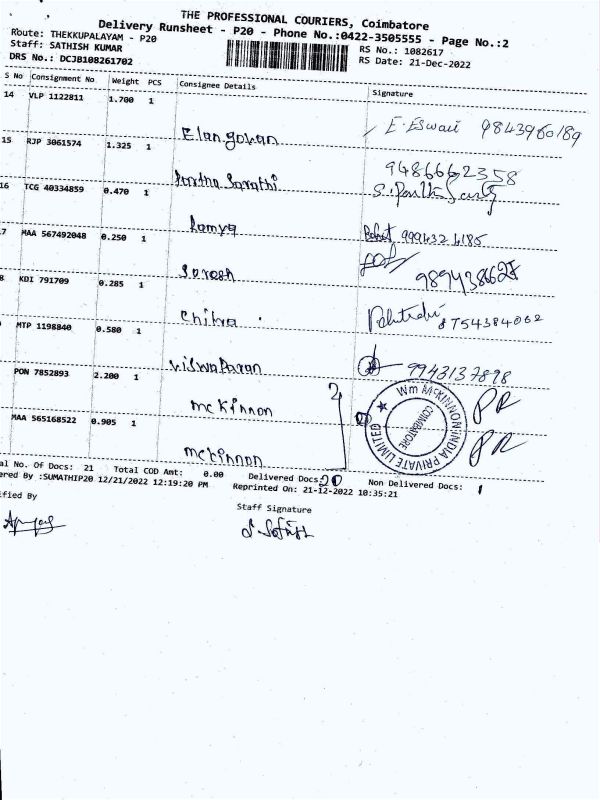 THE PROFESSIONAL COURIERS, Coimbatore
Delivery Runsheet - P20 - Phone No.:0422-3505555 - Page No.:2
Route: THEKKUPALAYAM - P20
RS No.: 1082617
Staff: SATHISH KUMAR
RS Date: 21-Dec-2022
DRS No.: DCJB108261702
S No Consignment No Weight PCS Consignee Details Signature
14 VLP 1122811 1.700 1
Elangovan E. Eswari 9843960189
15 RJP 3061574 1.325 1
Partha Sarathi 9486662358
16 TCG 40334859 0.470 1
Ramya 999432 4185
7 MAA 567492048 0.250 1
Suresh
8 KDI 791709 0.285 1
Chitra 8754384062
MTP 1198840 0.580 1
Viswanaran 9943137898
PON 7852893 2.200 1
McKinnon 2 PR
Wm McKINNON INDIA PRIVATE LIMITED
COIMBATORE
MAA 565168522 0.905 1
McKinnon PR
al No. Of Docs: 21 Total COD Amt: 0.00 Delivered Docs: 20 Non Delivered Docs: 1
ered By :SUMATHIP20 12/21/2022 12:19:20 PM Reprinted On: 21-12-2022 10:35:21
ified By
Staff Signature